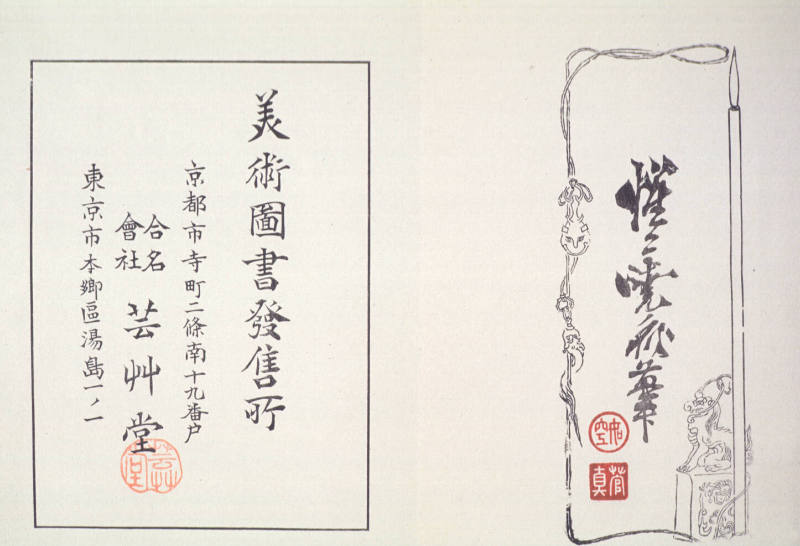 惺々暁斎筆
如空
美術圖書發售所
京都市寺町二條南十九番戸
合名會社 芸艸堂
東京市本郷區湯島一ノ一